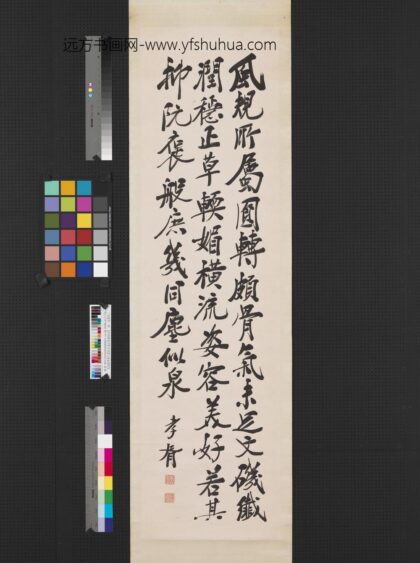 远方书画网-www.yfshuhua.com
風規所屬圓轉頗骨氣未足文磯纖
潤穩正草輭媚橫流姿容美好若其
抑阮褒般庶幾同塵似泉
孝胥